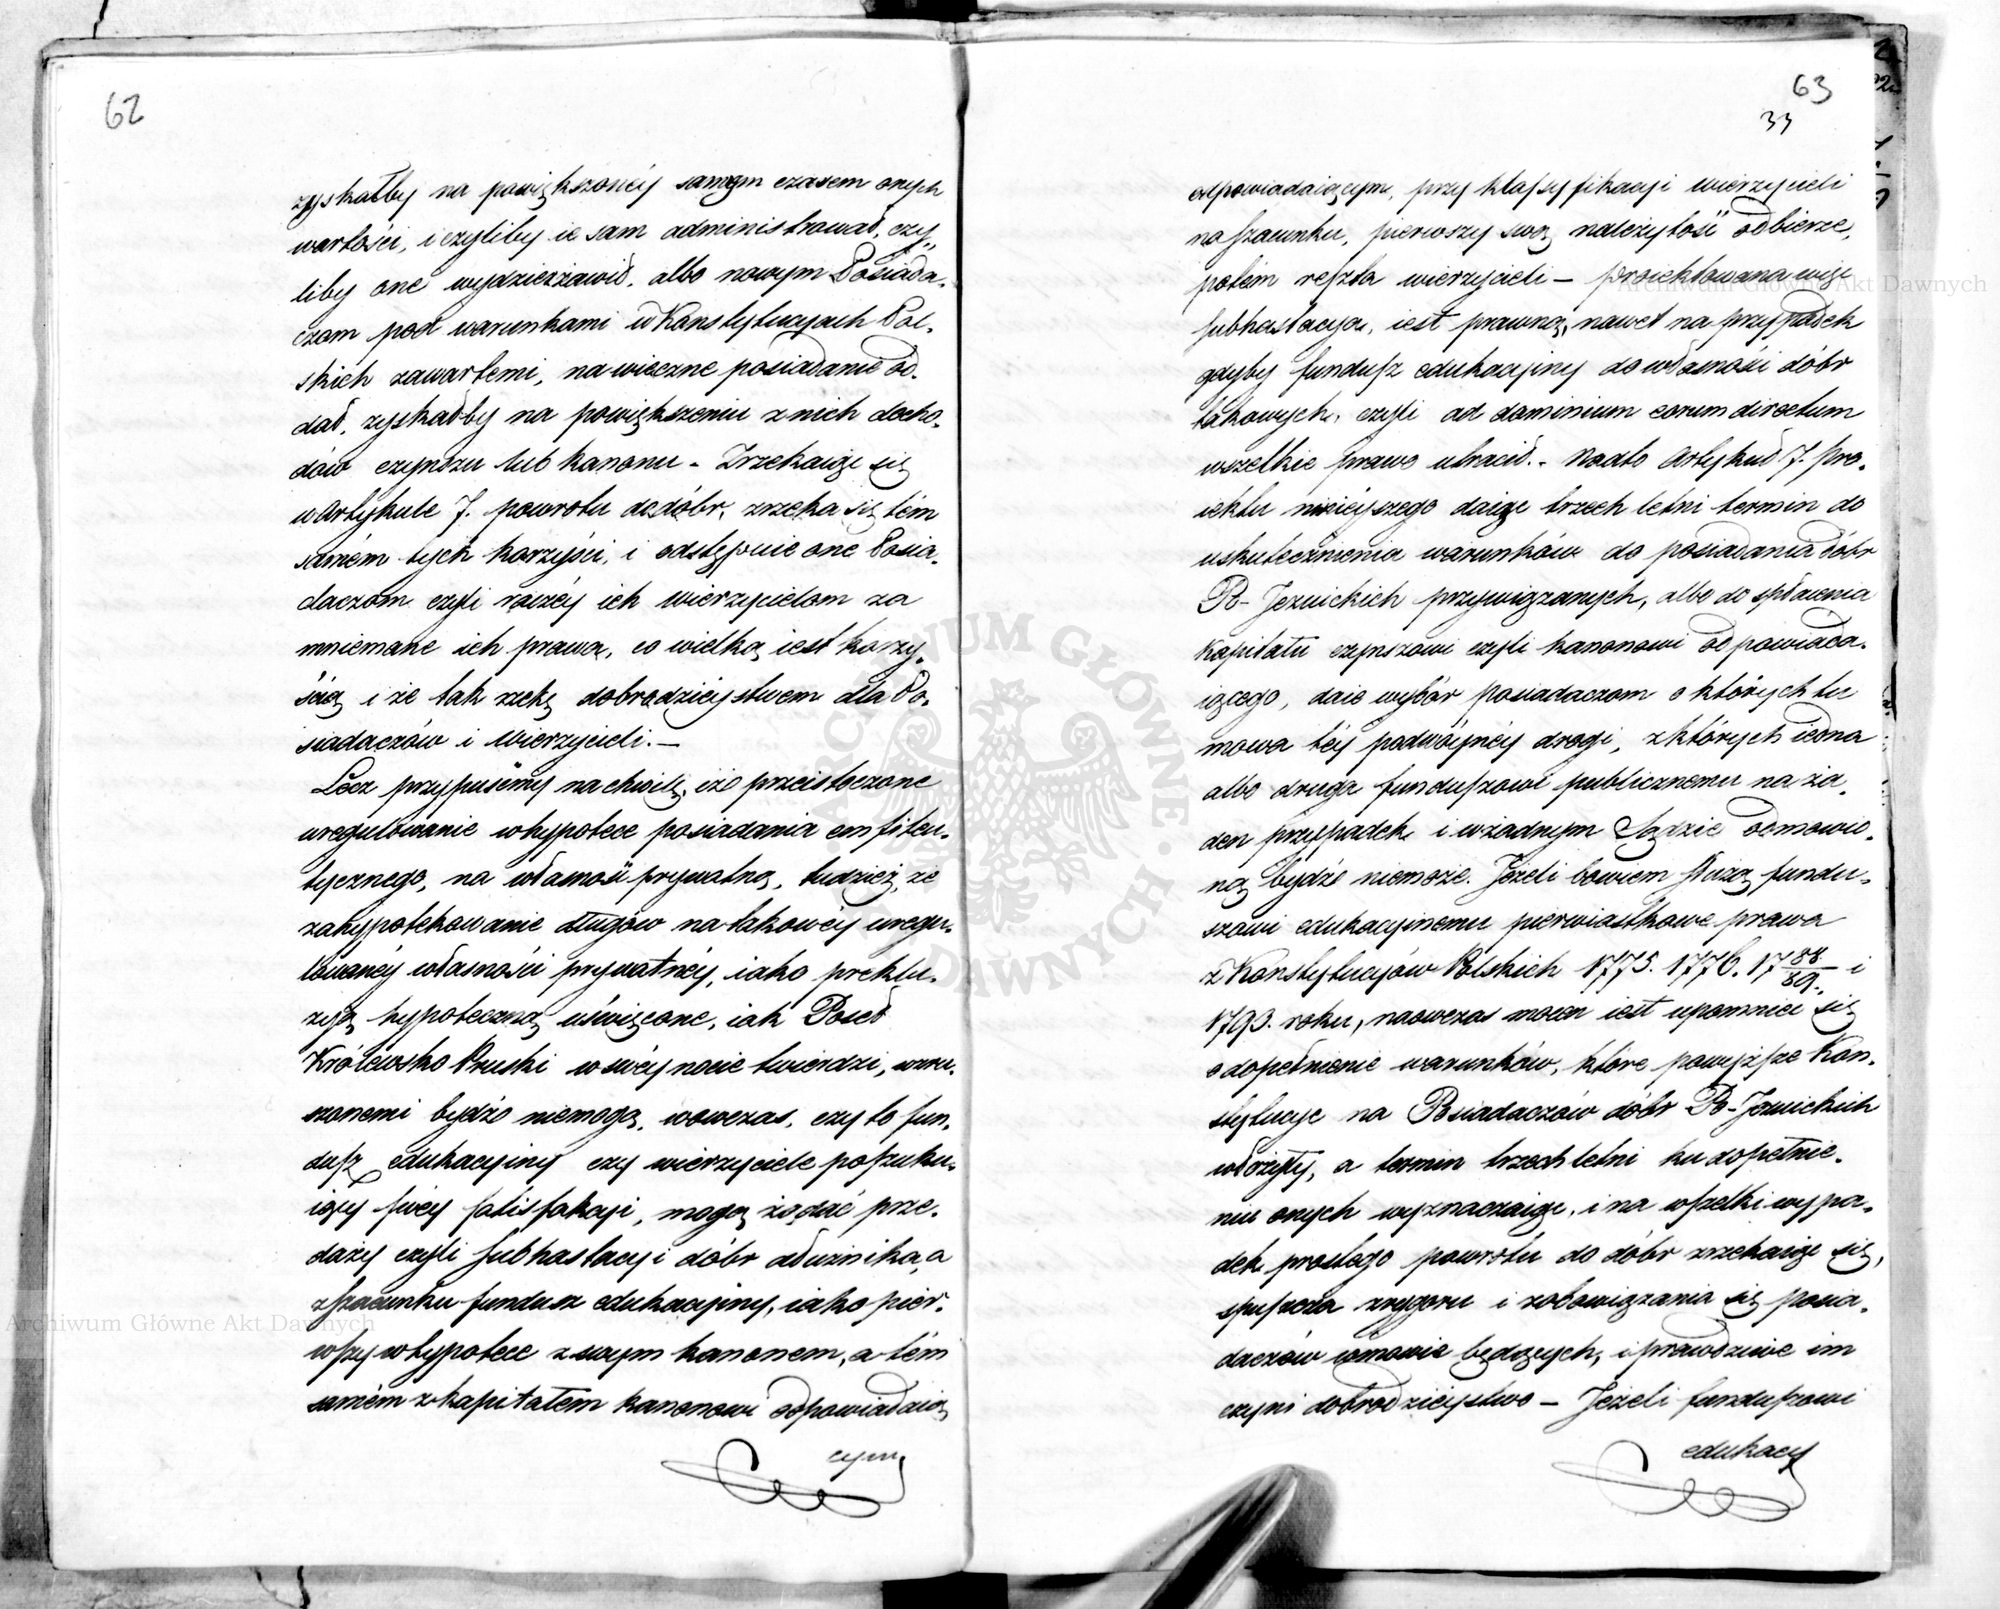 62
zyskałby na powiększonéy samym czasem onych
wartości, i czyliby ie sam administrował, czy„
liby one wydzierżawił, albo nowym Posiada„
czom pod warunkami w Konstytucyach Pol„
skich zawartemi, na wieczne posiadanie od„
dał, zyskałby na powiększeniu z nich docho„
dów czynszu lub kanonu – Zrzekaiąc się
w Artykule 7. powrotu do dóbr, zrzeka się tém
samém tych korzyści, i odstępuie one Posia„
daczom czyli raczéy ich wierzycielom za
mniemane ich prawa, co wielką iest korzy„
ścią i że tak rzekę dobrodzieystwem dla Po„
siadaczów i Wierzycieli. —
Lecz przypuśćmy na chwilę, iże przeistoczone
uregulowanie w hypotece posiadania emfiteu„
tycznego, na własność prywatną, tudzież, że
zahypotekowanie długów na takowéy uregu„
lowanéy własności prywatnéy, iako preklu„
zyą hypoteczną uświęcone, iak Poseł
Królewsko Pruski w swéy nocie twierdzi, wzru„
szonemi bydź niemogą, wowczas, czy to fun„
dusz edukacyiny czy wierzyciele poszuku„
iący swéy satisfakcyi, mogą żądać prze„
daży czyli subhastacyi dóbr dłużnika, a
z szacunku fundusz edukacyiny, iako pier„
wszy w hypotece z swym kanonem, a tém
samém z kapitałem kanonowi odpowiadaią
cym
63
33
odpowiadaiącym, przy klassyfikacyi wierzycieli
na szacunku, pierwszy swą należytość odbierze,
potém reszta wierzycieli — Proiektowana więc
subhastacya, iest prawną, nawet na przypadek
gdyby fundusz edukacyiny do własności dóbr
takowych, czyli ad dominium eorum directum
wszelkie prawo utracił. – Nadto Artykuł 7. pro„
iektu ninieyszego daiąc trzech letni termin do
uskutecznienia warunków do posiadania dóbr
Po-Jezuickich przywiązanych, albo do spłacenia
kapitału czynszowi czyli kanonowi odpowiada„
iącego, daie wybór posiadaczom o których tu
mowa téy podwóynéy drogi, z których iedna
albo druga funduszowi publicznemu na ża„
den przypadek i w żadnym Sądzie odmówio„
ną bydź niemoże. Jeżeli bowiem służą fundu„
szowi edukacyinemu pierwiastkowe prawa
z Konstytucyów Polskich 1775. 1776. 17 88/89. i
1793. roku, naowczas mocen iest upomnieć się
o dopełnienie warunków, które powyższe Kon„
stytucye na Posiadaczów dóbr Po-Jezuickich
włożyły, a termin trzech letni ku dopełnie„
niu onych wyznaczaiąc, i na wszelki wypa„
dek prostego powrotu do dóbr zrzekaiąc się,
spuszcza z rygoru i zobowiązania się posia„
daczów w mowie będących, i prawdziwe im
czyni dobrodzieystwo — Jeżeli funduszowi
edukacy